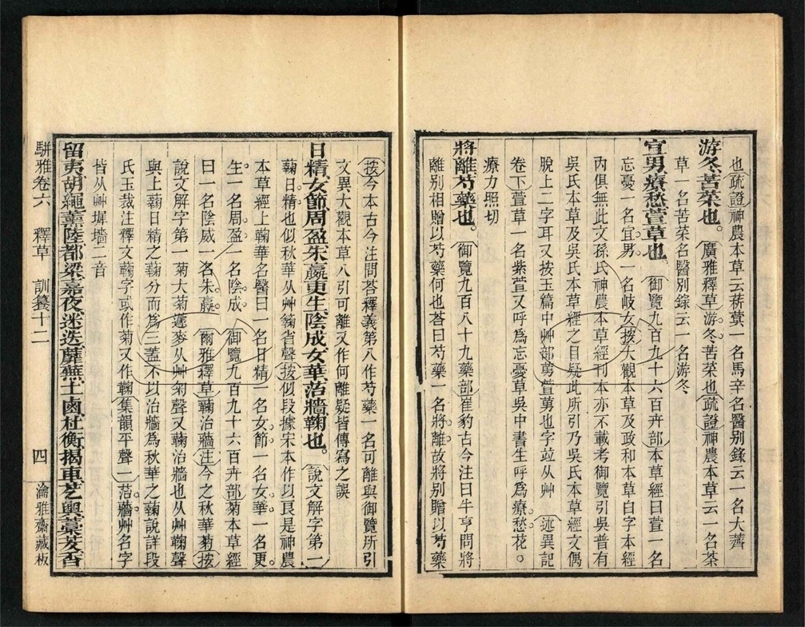 也疏證神農本草云菥蓂一名馬辛名醫別錄云一名大薺
游冬苦菜也。廣雅釋草游冬苦菜也疏證神農本草云一名荼
草一名苦菜名醫別錄云一名游冬
宜男療愁萱草也 御覽九百九十六百卉部本草經曰萱一名
忘憂一名宜男一名岐女按大觀本草及政和本草白字本經
內俱無此文孫氏神農本草經刊本亦不載考御覽引吳普有
吳氏本草及吳氏本草經之目疑此所引乃吳氏本草經文偶
脫上二字耳又按玉篇中艸部萲萱萬也字竝从艸 述異記
卷下萱草一名紫萱又呼爲忘憂草吳中書生呼爲療愁花。
療力照切
將離芍藥也。御覽九百八十九藥部崔豹古今注曰牛亨問將
離別相贈以芍藥何也荅曰芍藥一名將離故將別贈以芍藥
按今本古今注問荅釋義第八作芍藥一名可離與御覽所引
文異大觀本草八引可離又作何離疑皆傳寫之誤
日精女節周盈朱蠃更生陰成女華治牆鞠也。說文解字第一
蘜日精也似秋華从艸省聲按似段據宋本作以艮是神農
本草經上蘜華名醫曰一名日精一名女節一名女華一名更
生一名周盈一名陰成 御覽九百九十六百卉部菊本草經
曰一名陰威一名朱蠃 爾雅釋草蘜治牆注今之秋華菊按
說文解字第一菊大菊蘧麥从艸匊聲又蘜治牆也从艸鞠聲
與上蘜日精之蘜分而爲三蓋不以治牆爲秋華之蘜說詳段
氏玉裁注釋文蘜字或作菊又作鞠集韻平聲二菭牆艸名字
皆从艸墀墻二音
留夷胡繩藁陸都梁嘉夜迷迭蘼蕪土鹵杜衡揭車芝輿藁茇香
駢雅卷六 釋草 訓纂十二 四 瀹雅齋藏板